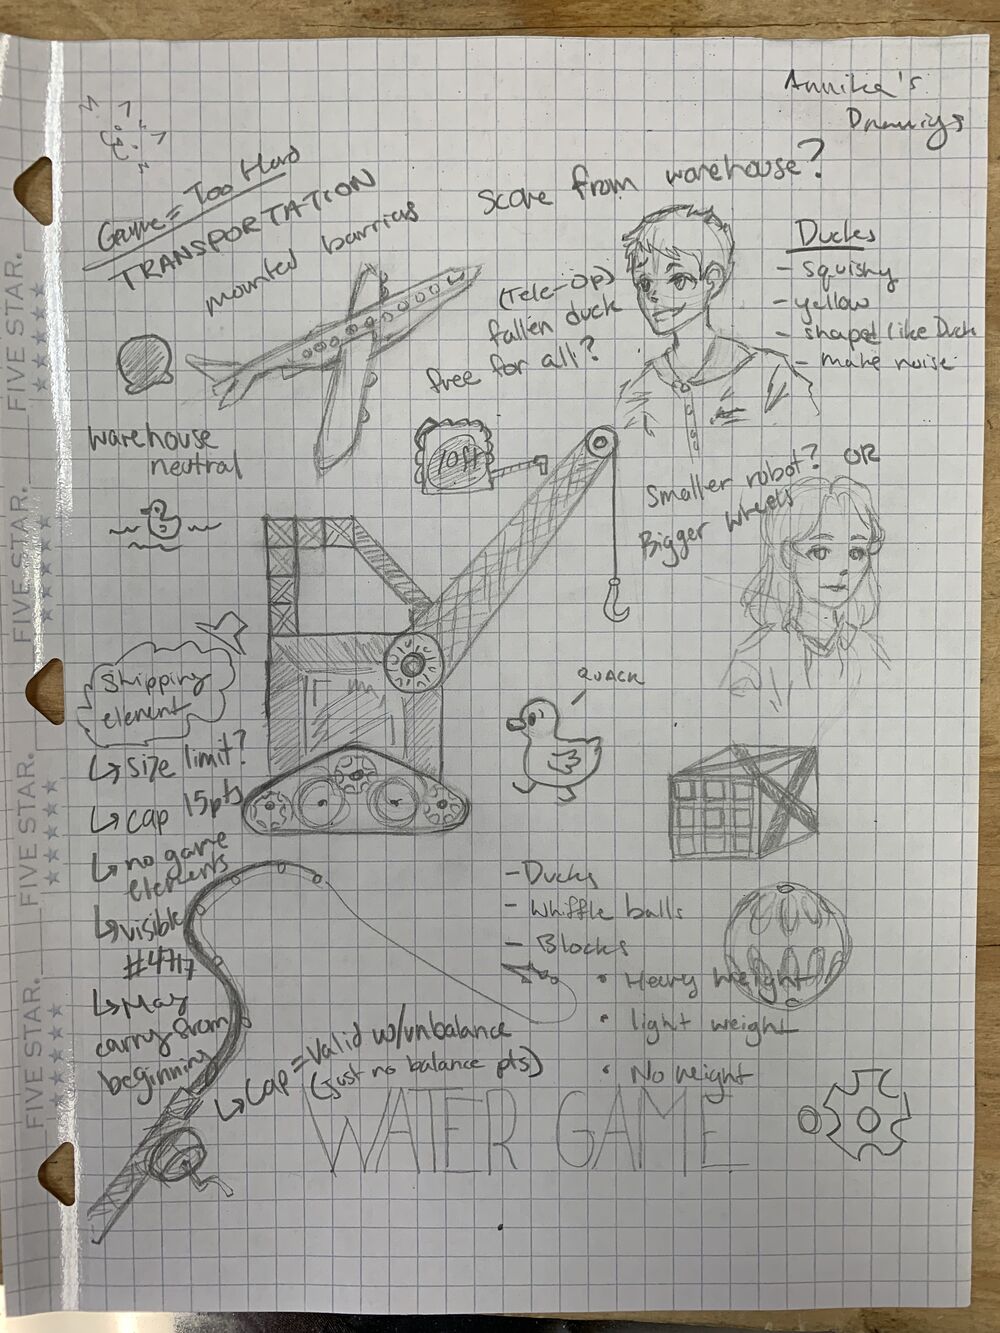 FIVE STAR.
FIVE STAR.
FIVE STAR.
FIVE STAR.
Annika's
Drawings
Game = Too Hard
TRANSPORTATION
mounted barriers
Score from warehouse?
(tele-op)
fallen duck
free for all?
Ducks
- squishy
- yellow
- shaped like Duck
- make noise
warehouse
neutral
Smaller robot? OR
Bigger wheels
Shipping
element
↳ size limit?
↳ cap 15pts
↳ no game
elements
↳ visible
#4717
↳ May
carry from
beginning
↳ Cap = valid w/unbalance
(just no balance pts)
QUACK
- Ducks
- Whiffle balls
- Blocks
• Heavy weight
• light weight
• No weight
WATER GAME